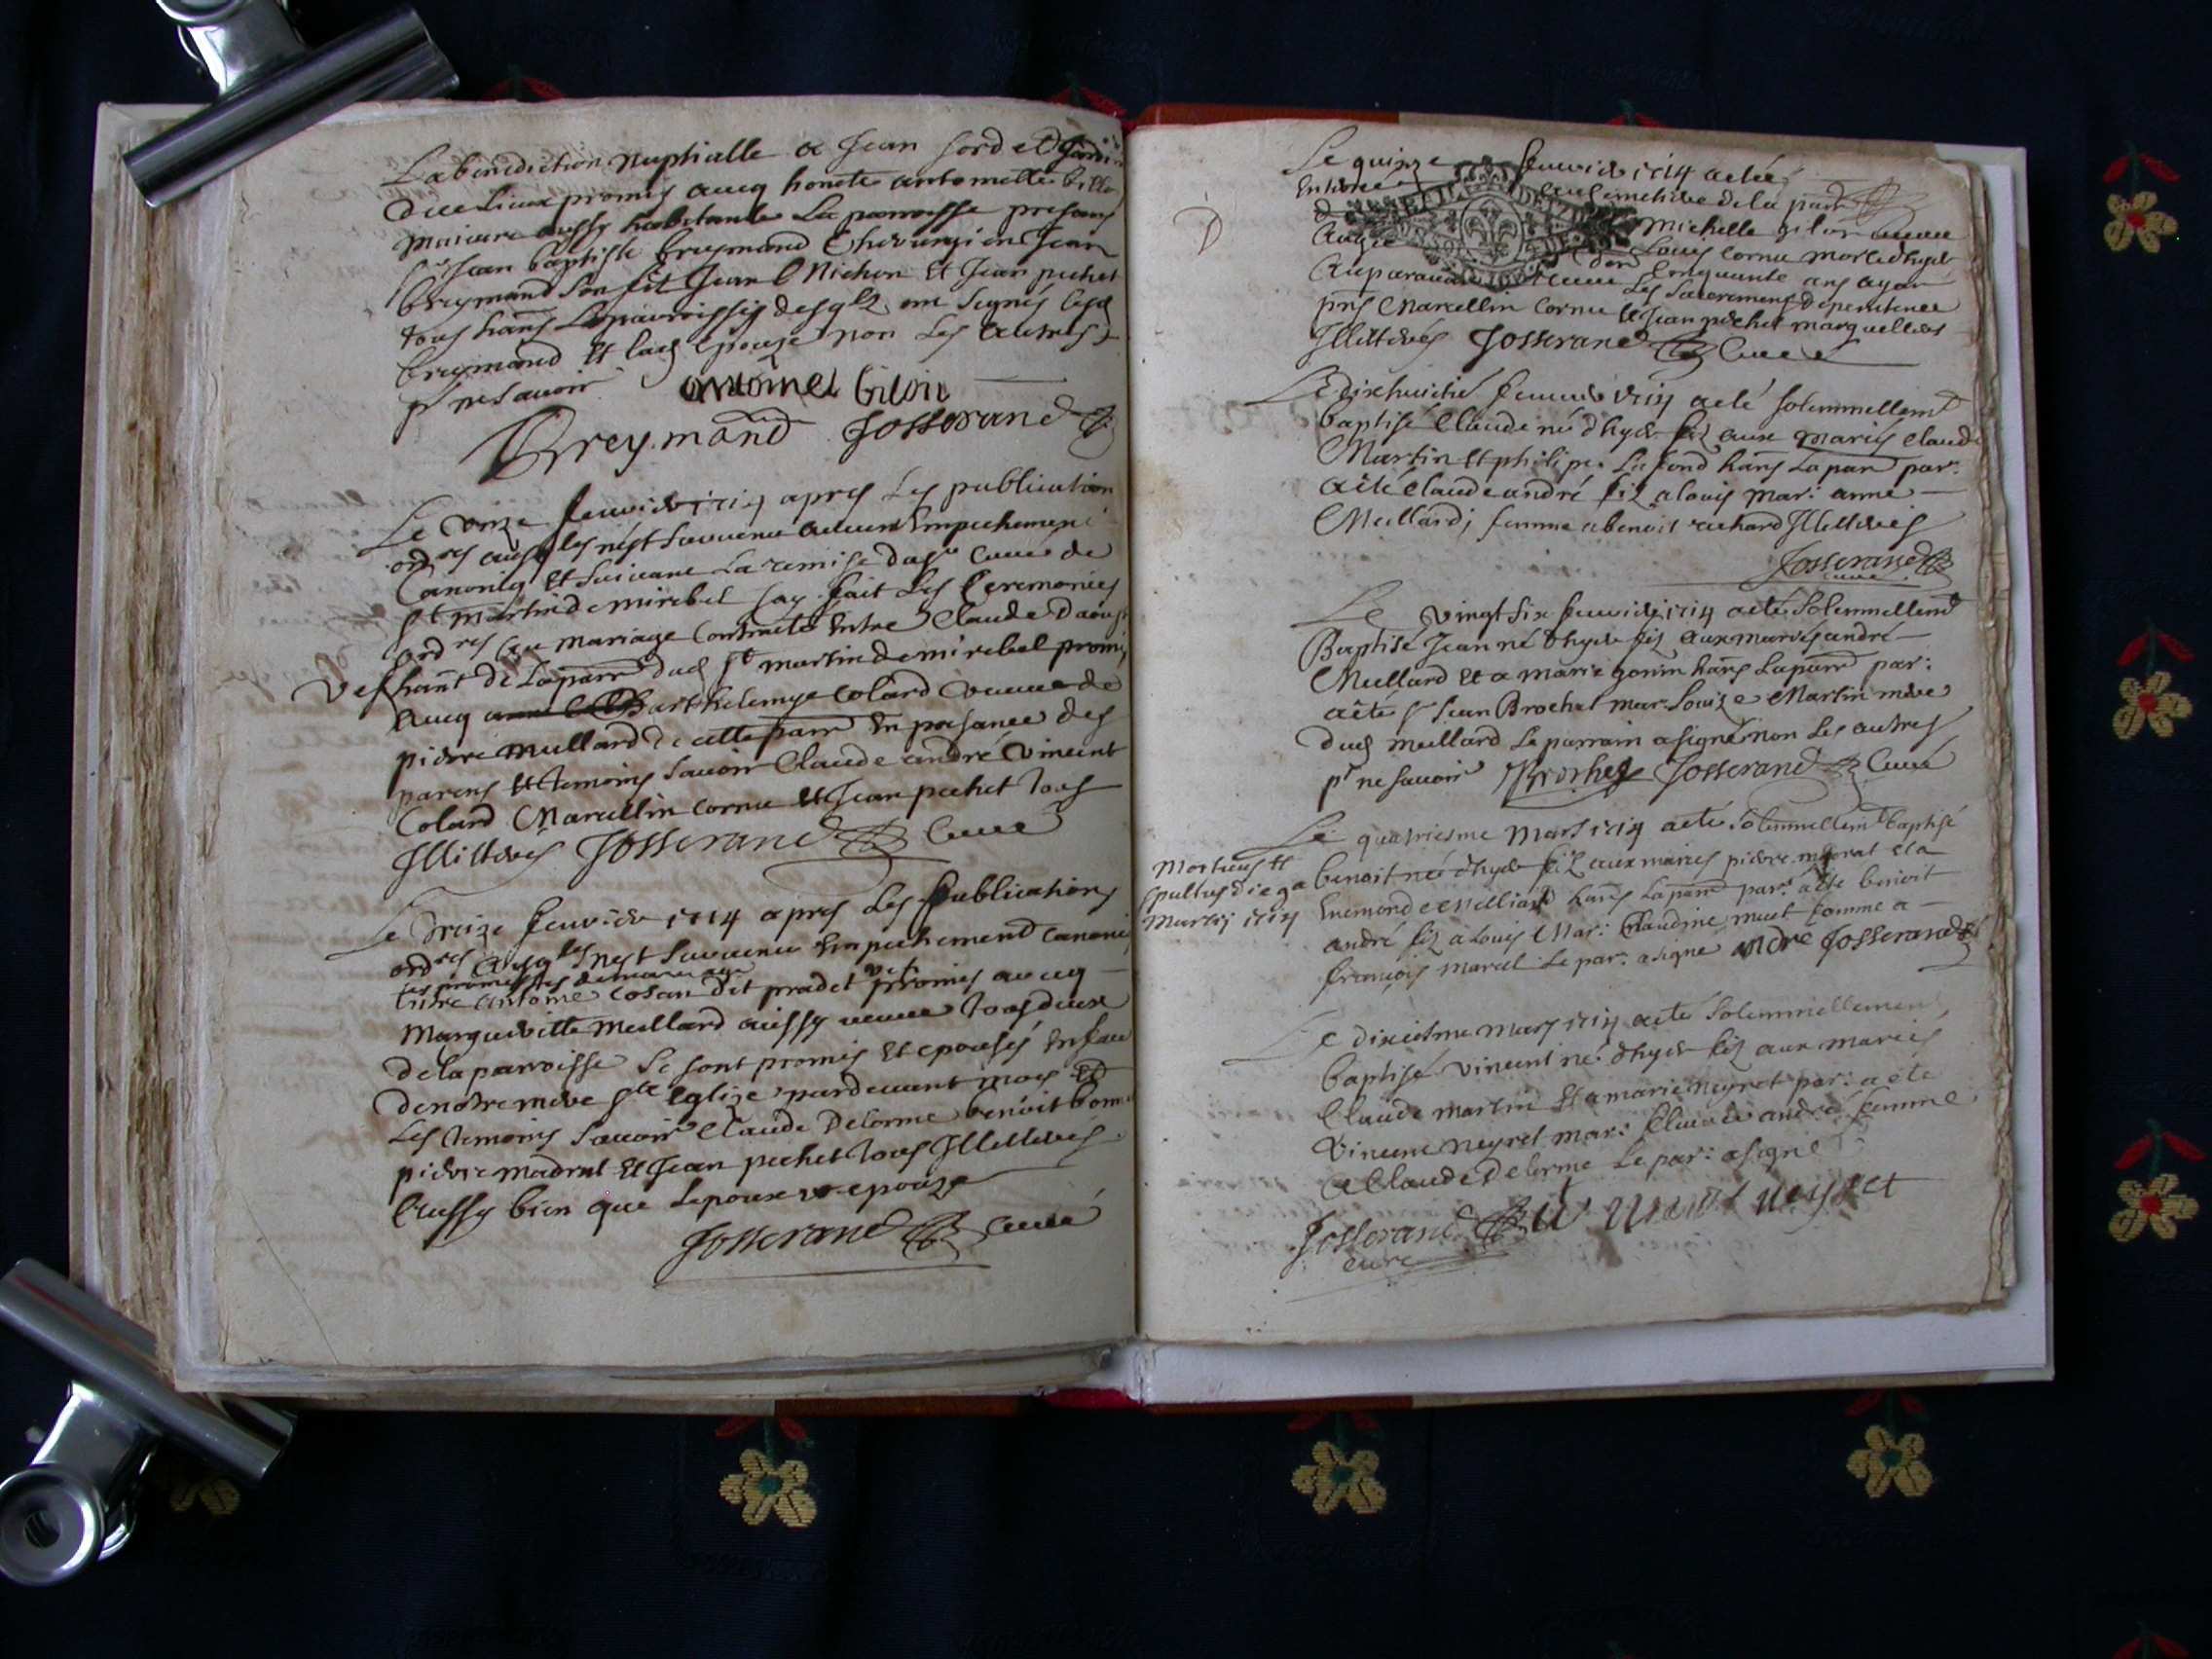 La benediction Nuptialle a Jean sord et
du lieux promis avecq honete antoinette
aussy habitante La parroisse presans
Sr Jean baptiste breymand Chirurgien Jean
breymand son fils Jean Nichon Et Jean pechet
tous hans La parroisse desqls ont signés
breymand Et lad epouze non Les autres
pr ne savoir
antoinet Gilon
Breymand Josserand
Le onze fevvier 1714 apres Les publication
ordres ausqles n'est survenu aucun Empechement
Canonicq Et suivant La remise du Sr Curé de
St martin de mirebel jay fait Les Ceremonies
ordres au mariage Contracté Entre Claude Daoust
vef hant de La parr dud St martin de mirebel promis
avecq Barthelemye Colard veuve de
pierre meillard de cette parr En presance des
parens Et temoins savoir Claude andré vincent
Colard Marcellin Cornu Et Jean pechet tous
Illitterés Josserand Curé
Le treize fevvier 1714 apres Les publications
ordres ausqles n'est survenu Empechement Canonic
Les promesses de mariage
Entre antoine Cosan dit pradel vef promis avecq
Margueritte Meillard aussy veuve tous deux
de la parroisse Se sont promis Et epousés En face
de notre mere Ste Eglize pardevant moy Et
Les temoins savoir Claude Delorme benoit
pierre madrat Et Jean pechet tous Illitterés
aussy bien que Lepoux et epouze
Josserand Curé
Le quinze fevvier 1714 a eté
Enterrée au Cemetiere de la parr
Michelle gilon veuve
Agée Louis Cornu morte dhyer
auparavant Cinquante ans ayan
reçeu Les sacremens de penitence
pns Marcellin Cornu Et Jean pechet marguelliers
Illitterés Josserand Curé
Le dixhuictie fevvrie 1714 a eté solemnellemt
baptisé Claude né dhyer fiz aux mariés Claude
Martin Et philipe La fond hans La parr par:
a eté Claude andré fiz a louis mar: anne
Meillard femme a benoit richard Illitterés
Josserand
curé
Le vingt six fevvrier 1714 a eté Solemnellemt
Baptisé Jean né dhyer fiz aux mariés andré
Meillard Et a marie gonin hans La parr par:
a eté Sr Jean Brochet mar: Louize Martin mere
dud meillard Le parrain a signé non Les autres
pr ne savoir Brochet Josserand Curé
Le quatriesme Mars 1714 a eté Solemnellemt baptisé
Mortuus Et
sepultus die 9a
Martij 1714
benoit né dhyer fiz aux mariés pierre madrat Et a
Enemonde Meilliard hans La parr par: a eté benoit
andré fiz à Louis Mar: Claudine muet femme a
françois marcel Le par: a signé andré Josserand
Le dixiesme mars 1714 a eté Solemnellement
baptisé vincent né dhyer fiz aux mariés
Claude martin Et a marie neyret par: a eté
vincent neyret mar: Claude andré femme
a Claude Delorme Le par: a signé
Josserand neyret
curé